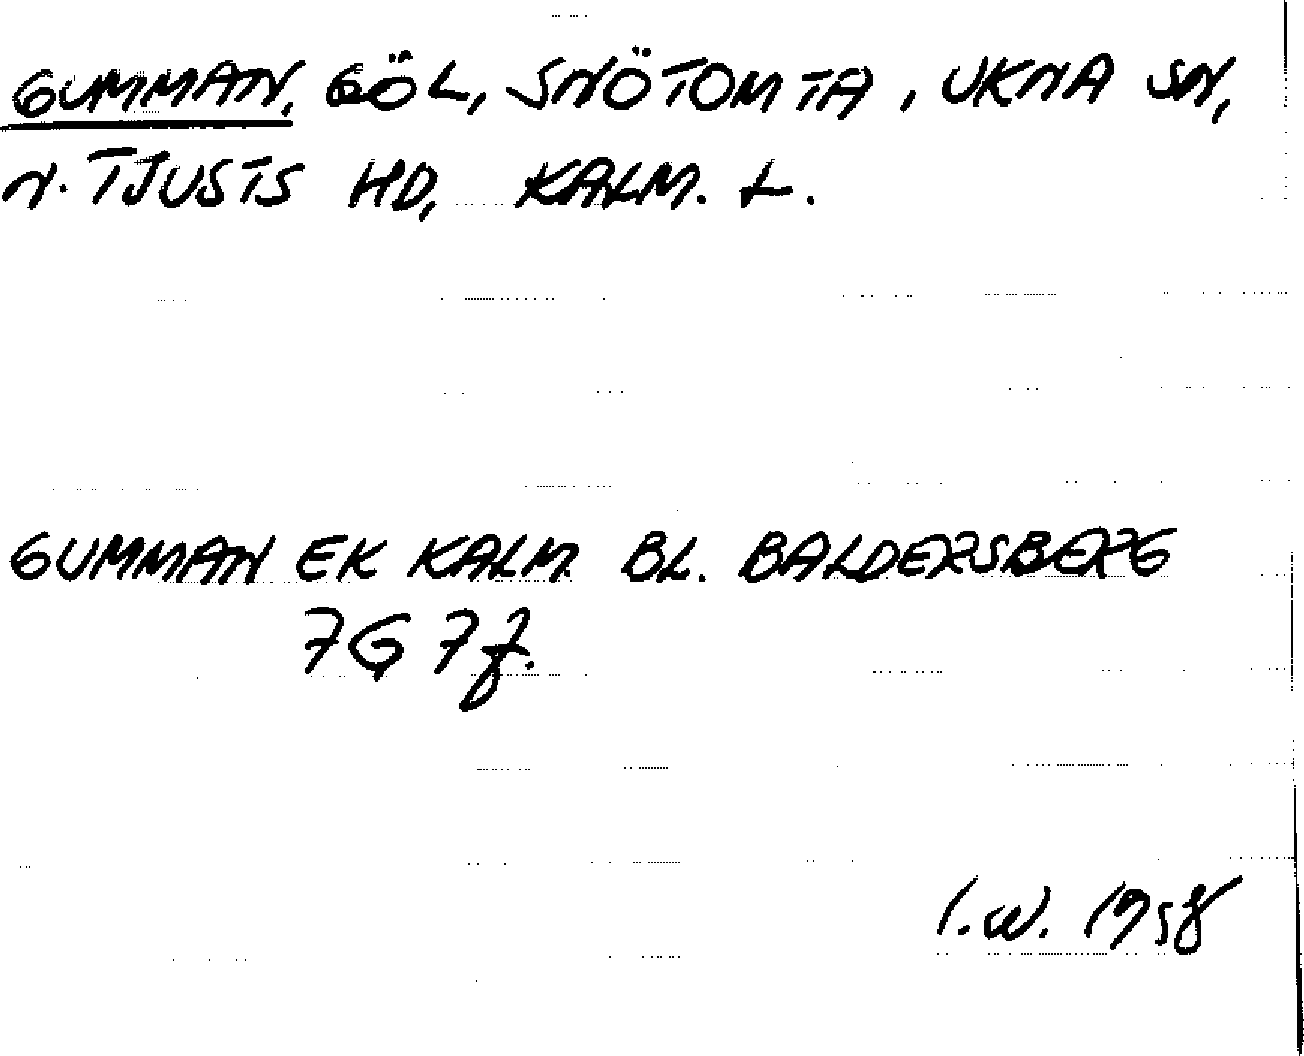 GUMMAN, GÖL, SNÖTOMTA, UKNA SN,
N. TJUSTS HD, KALM. L.
GUMMAN EK KALM. BL. BALDERSBERG
7G 7f.
I.W. 1958